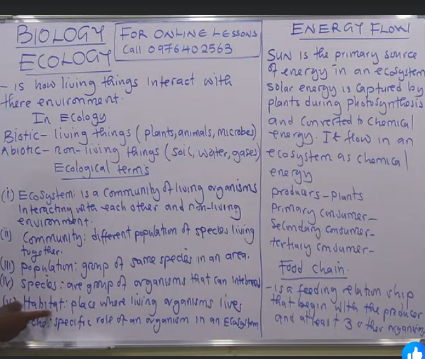 BIOLOGY
ECOLOGY
FOR ONLINE LESSONS
Call 0976402563
- is how living things interact with
there environment.
In Ecology
Biotic - living things (plants, animals, microbes)
Abiotic - non-living things (soil, water, gases)
Ecological terms
(i) Ecosystem: is a community of living organisms
Interacting with each other and non-living
environment.
(ii) Community: different population of species living
together.
(iii) Population: group of same species in an area.
(iv) Species: are group of organisms that can
Habitat: place where living organisms lives
specific role of an organism in an Ecosystem
ENERGY FLOW
SUN is the primary source
of energy in an ecosystem
solar energy is captured by
plants during photosynthesis
and converted to chemical
energy. It flow in an
ecosystem as chemical
energy
producers - plants
Primary consumer -
Secondary consumer -
tertiary consumer -
Food chain.
- is a feeding relation ship
that begin with the producer
and atleast 3 other organisms